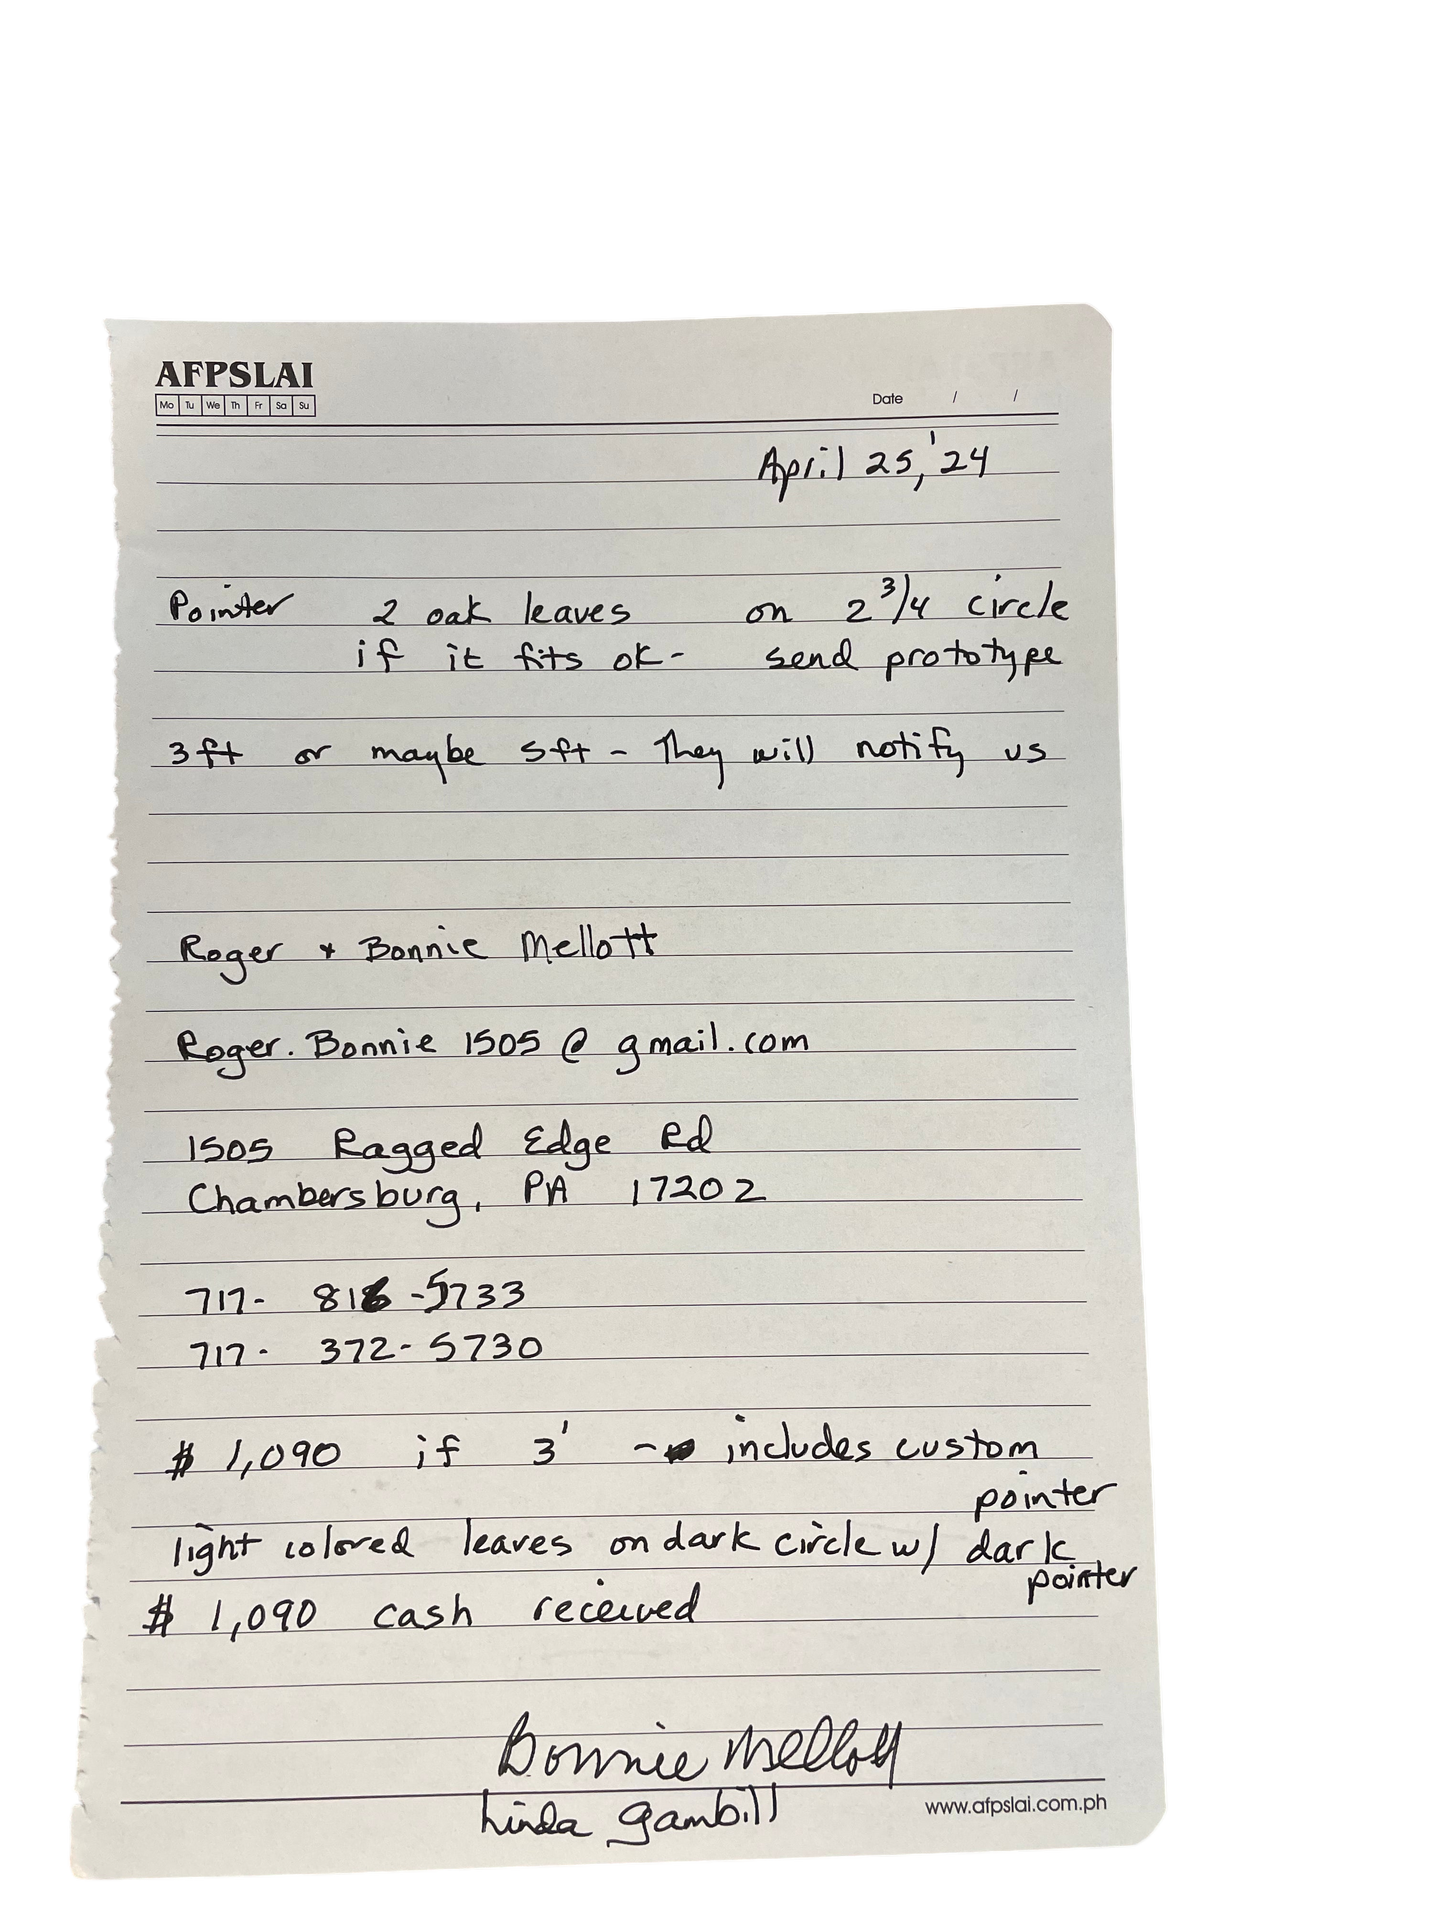 AFPSLAI
Mo Tu We Th Fr Sa Su
Date / /
April 25, '24
Pointer 2 oak leaves on 2 3/4 circle
if it fits ok - send prototype
3ft or maybe 5ft - They will notify us
Roger + Bonnie Mellott
Roger.Bonnie 1505 @ gmail.com
1505 Ragged Edge Rd
Chambersburg, PA 17202
717- 816-5733
717- 372-5730
$ 1,090 if 3' - includes custom
pointer
light colored leaves on dark circle w/ dark
pointer
$ 1,090 cash received
Bonnie Mellott
Linda Gambill
www.afpslai.com.ph